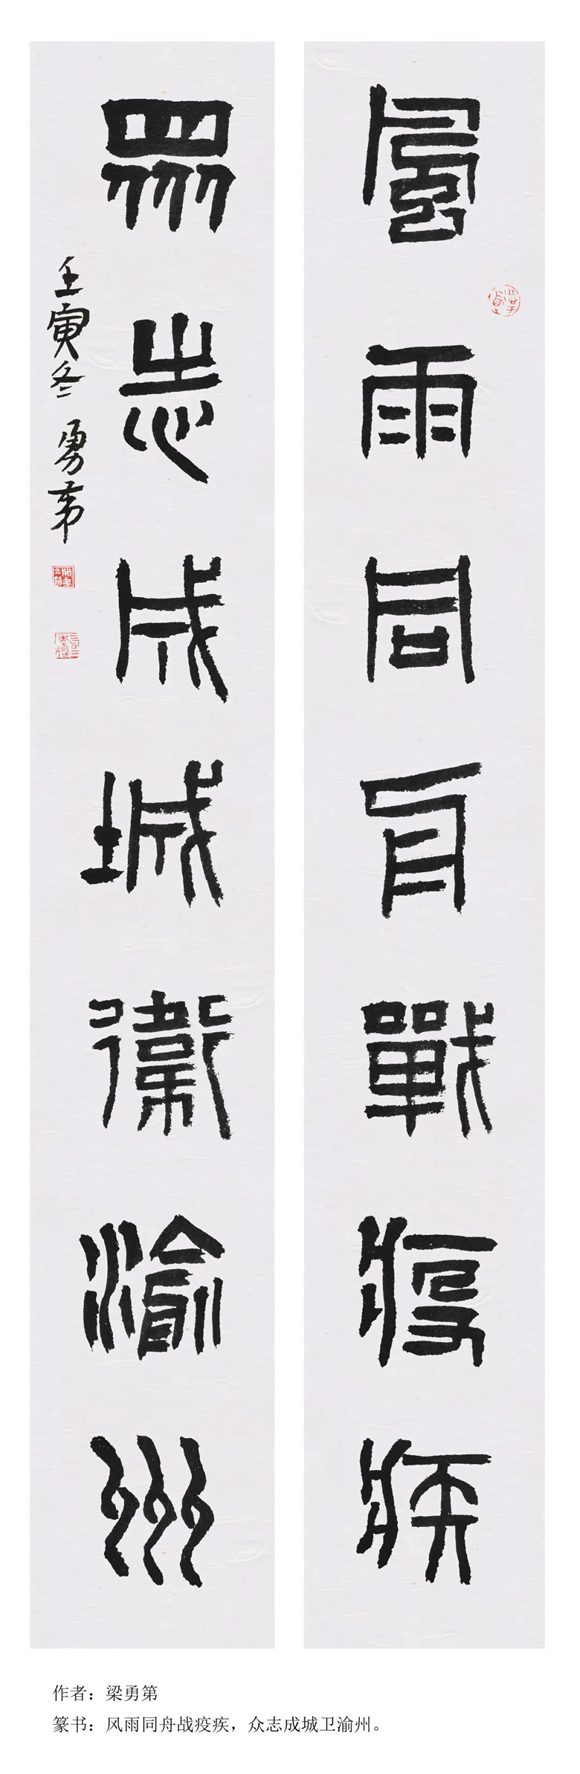 風雨同舟戰疫疾
眾志成城衛渝州
壬寅冬 勇第
作者：梁勇第
篆书：风雨同舟战疫疾，众志成城卫渝州。